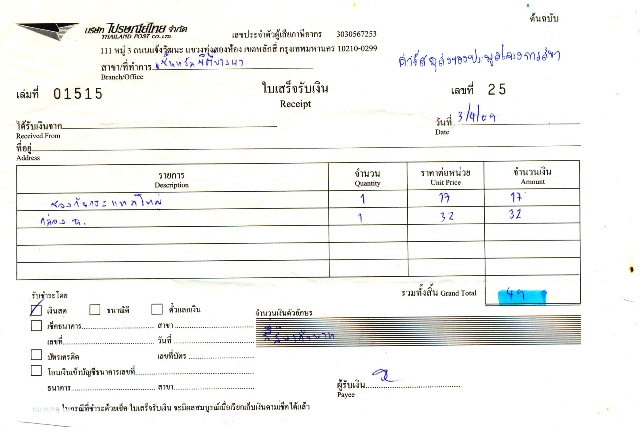 ต้นฉบับ
บริษัท ไปรษณีย์ไทย จำกัด
THAILAND POST CO.,LTD.
เลขประจำตัวผู้เสียภาษีอากร 3030567253
111 หมู่ 3 ถนนแจ้งวัฒนะ แขวงทุ่งสองห้อง เขตหลักสี่ กรุงเทพมหานคร 10210-0299
สาขา/ที่ทำการ
Branch/Office
เล่มที่ 01515
ใบเสร็จรับเงิน
Receipt
เลขที่ 25
วันที่ 3/4/09
Date
ได้รับเงินจาก
Received From
ที่อยู่
Address
รายการ จำนวน ราคาต่อหน่วย จำนวนเงิน
Description Quantity Unit Price Amount
ซองกันกระแทกใหญ่ 1 17 17
กล่อง ฉ. 1 32 32
รวมทั้งสิ้น Grand Total 49
รับชำระโดย
เงินสด ธนาณัติ ตั๋วแลกเงิน
จำนวนเงินตัวอักษร
สี่สิบเก้าบาท
เช็คธนาคาร สาขา
เลขที่ วันที่
บัตรเครดิต เลขที่บัตร
โอนเงินเข้าบัญชีธนาคารเลขที่
ธนาคาร สาขา
ผู้รับเงิน
Payee
หมายเหตุ ในกรณีที่ชำระด้วยเช็ค ใบเสร็จรับเงิน จะมีผลสมบูรณ์เมื่อเรียกเก็บเงินตามเช็คได้แล้ว